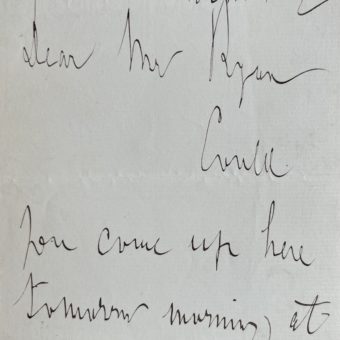 Dear Mr Ryan
Could
you come up here
tomorrow morning, at